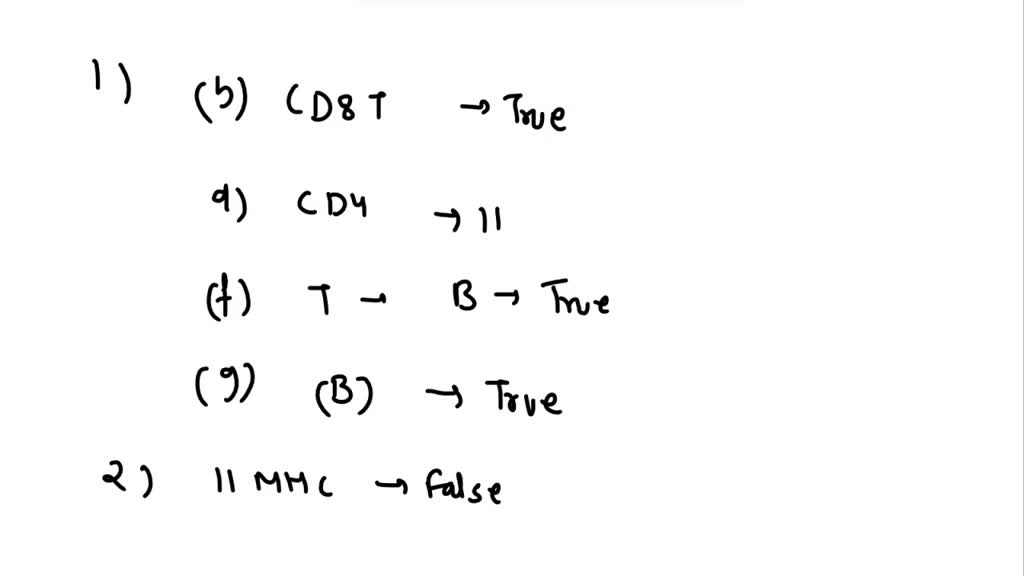 1) (b) CD8 T → True
a) CD4 → 11
(f) T → B → True
(g) (B) → True
2) 11 MHC → false